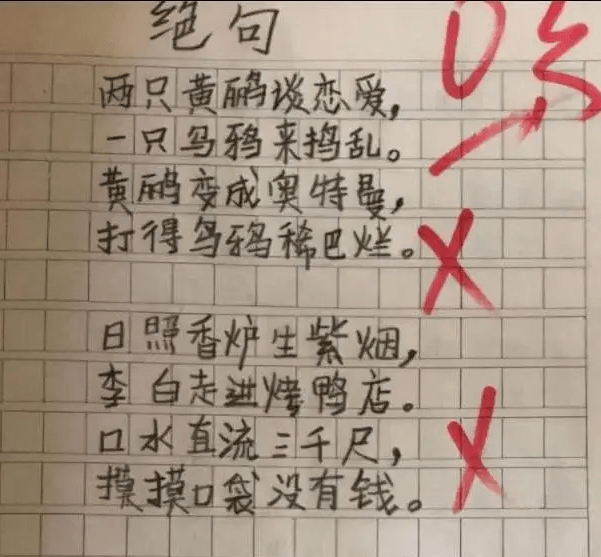 绝句
0分
两只黄鹂谈恋爱,
一只乌鸦来捣乱。
黄鹂变成奥特曼,
打得乌鸦稀巴烂。
日照香炉生紫烟,
李白走进烤鸭店。
口水直流三千尺,
摸摸口袋没有钱。